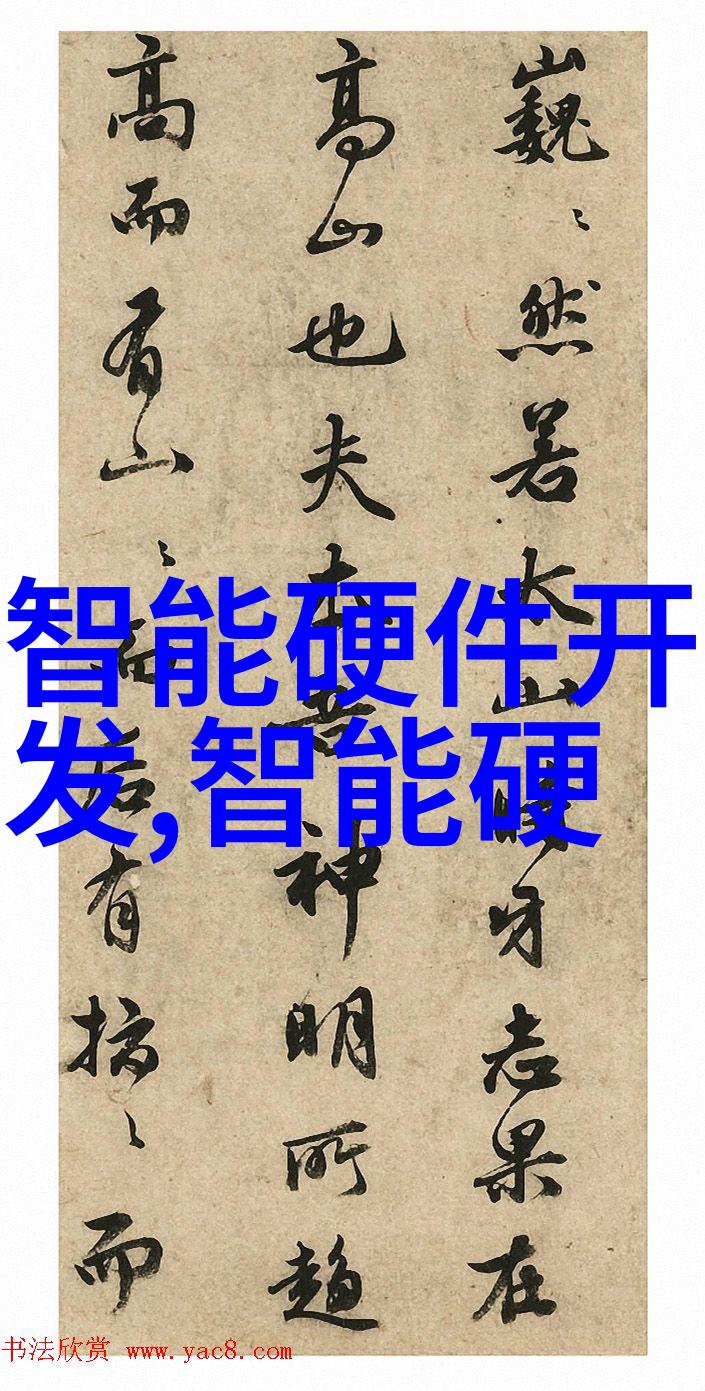 巍〻然若太山時牙志果在
高山也夫本吾神明所趨
高而有山〻而后有搞〻而
智能硬件开
发,智能硬
书法欣赏 www.yac8.com